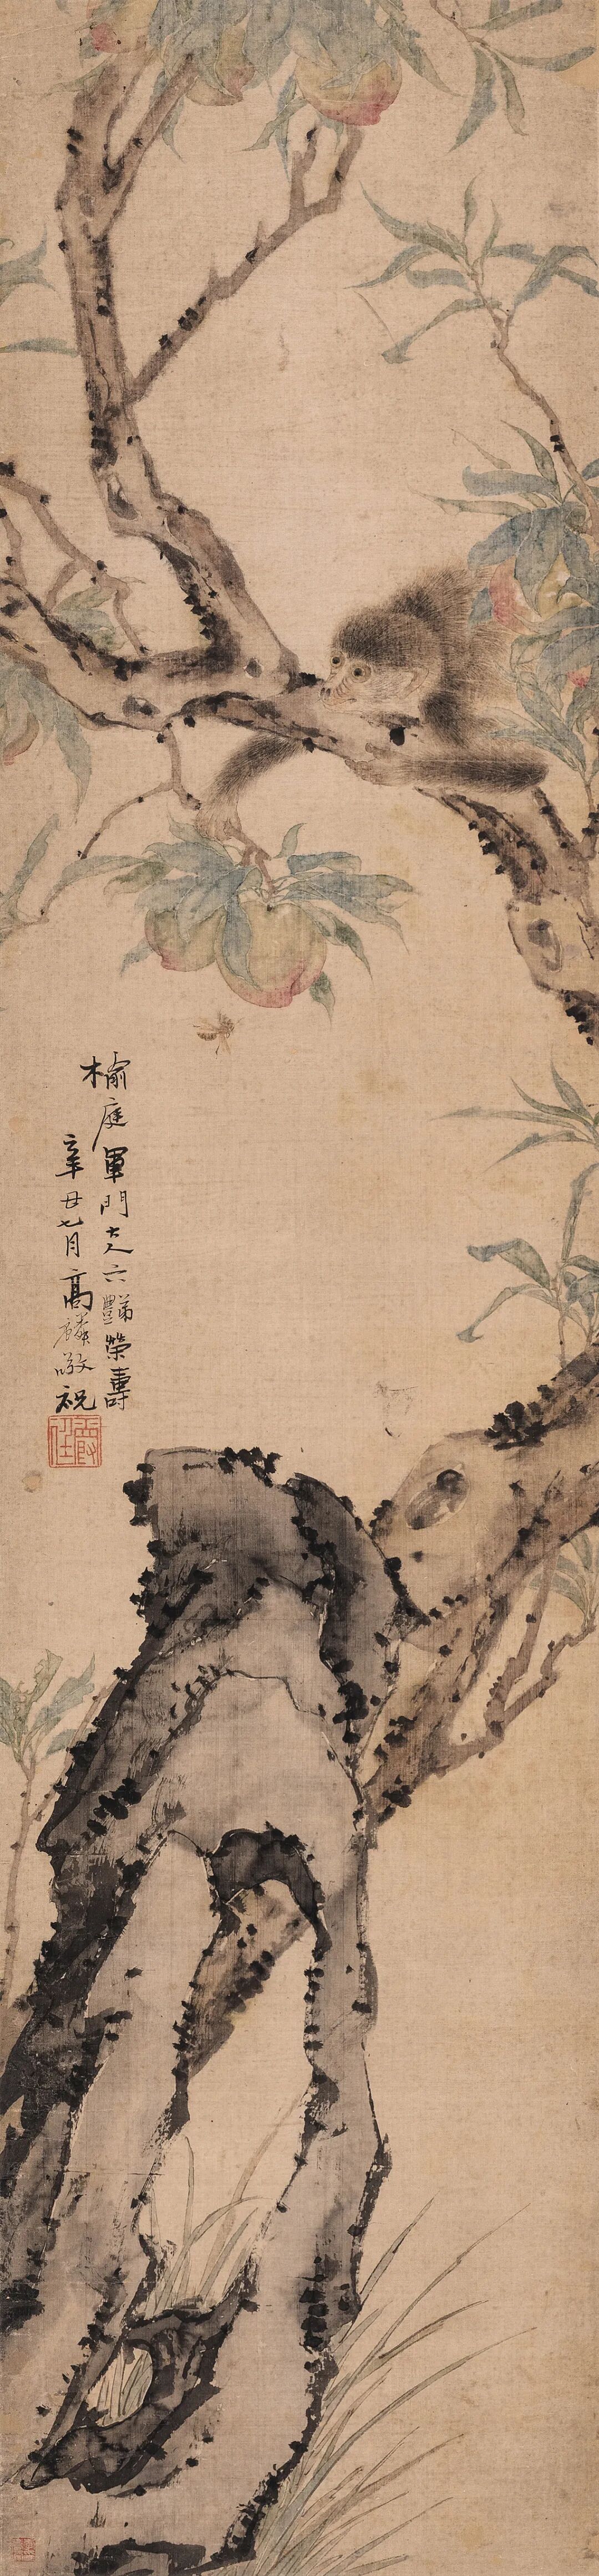 榆庭軍門大人六豑榮壽
辛丑七月高麟敬祝